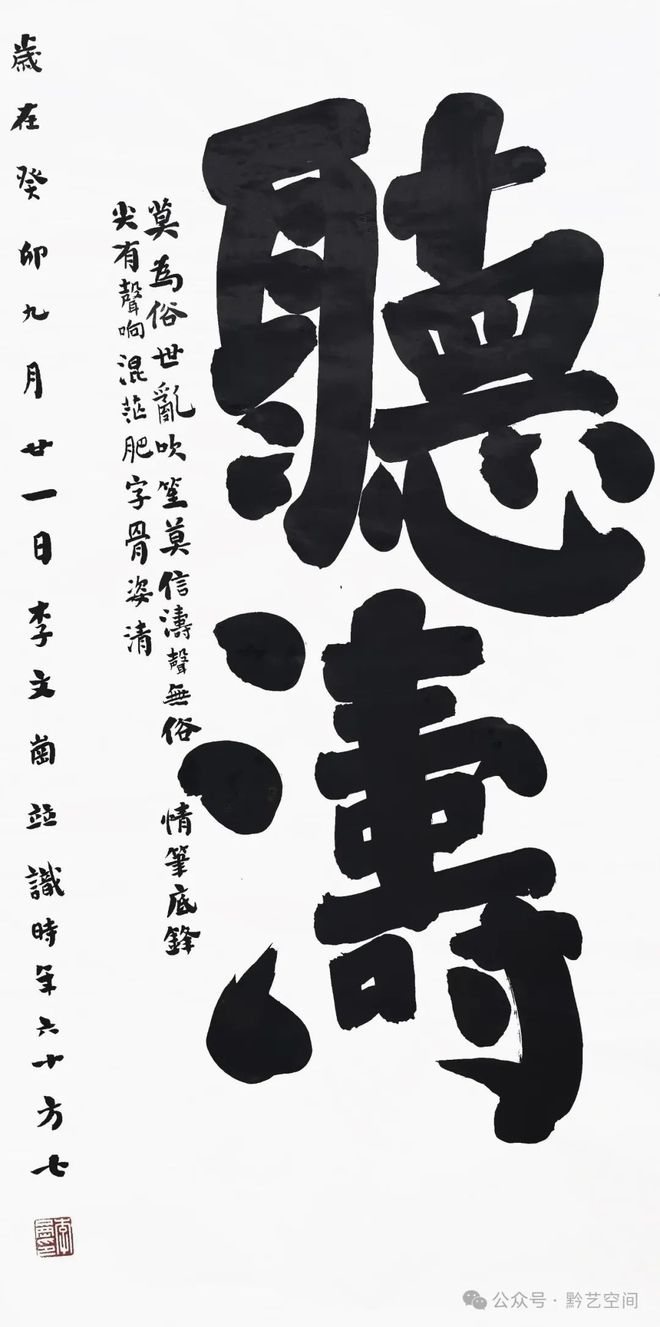 聽濤
莫為俗世亂吹笙莫信濤聲無俗情筆底鋒
尖有聲响混茫肥字骨姿清
歲在癸卯九月廿一日李文崗並識時年六十方七
公众号·黔艺空间